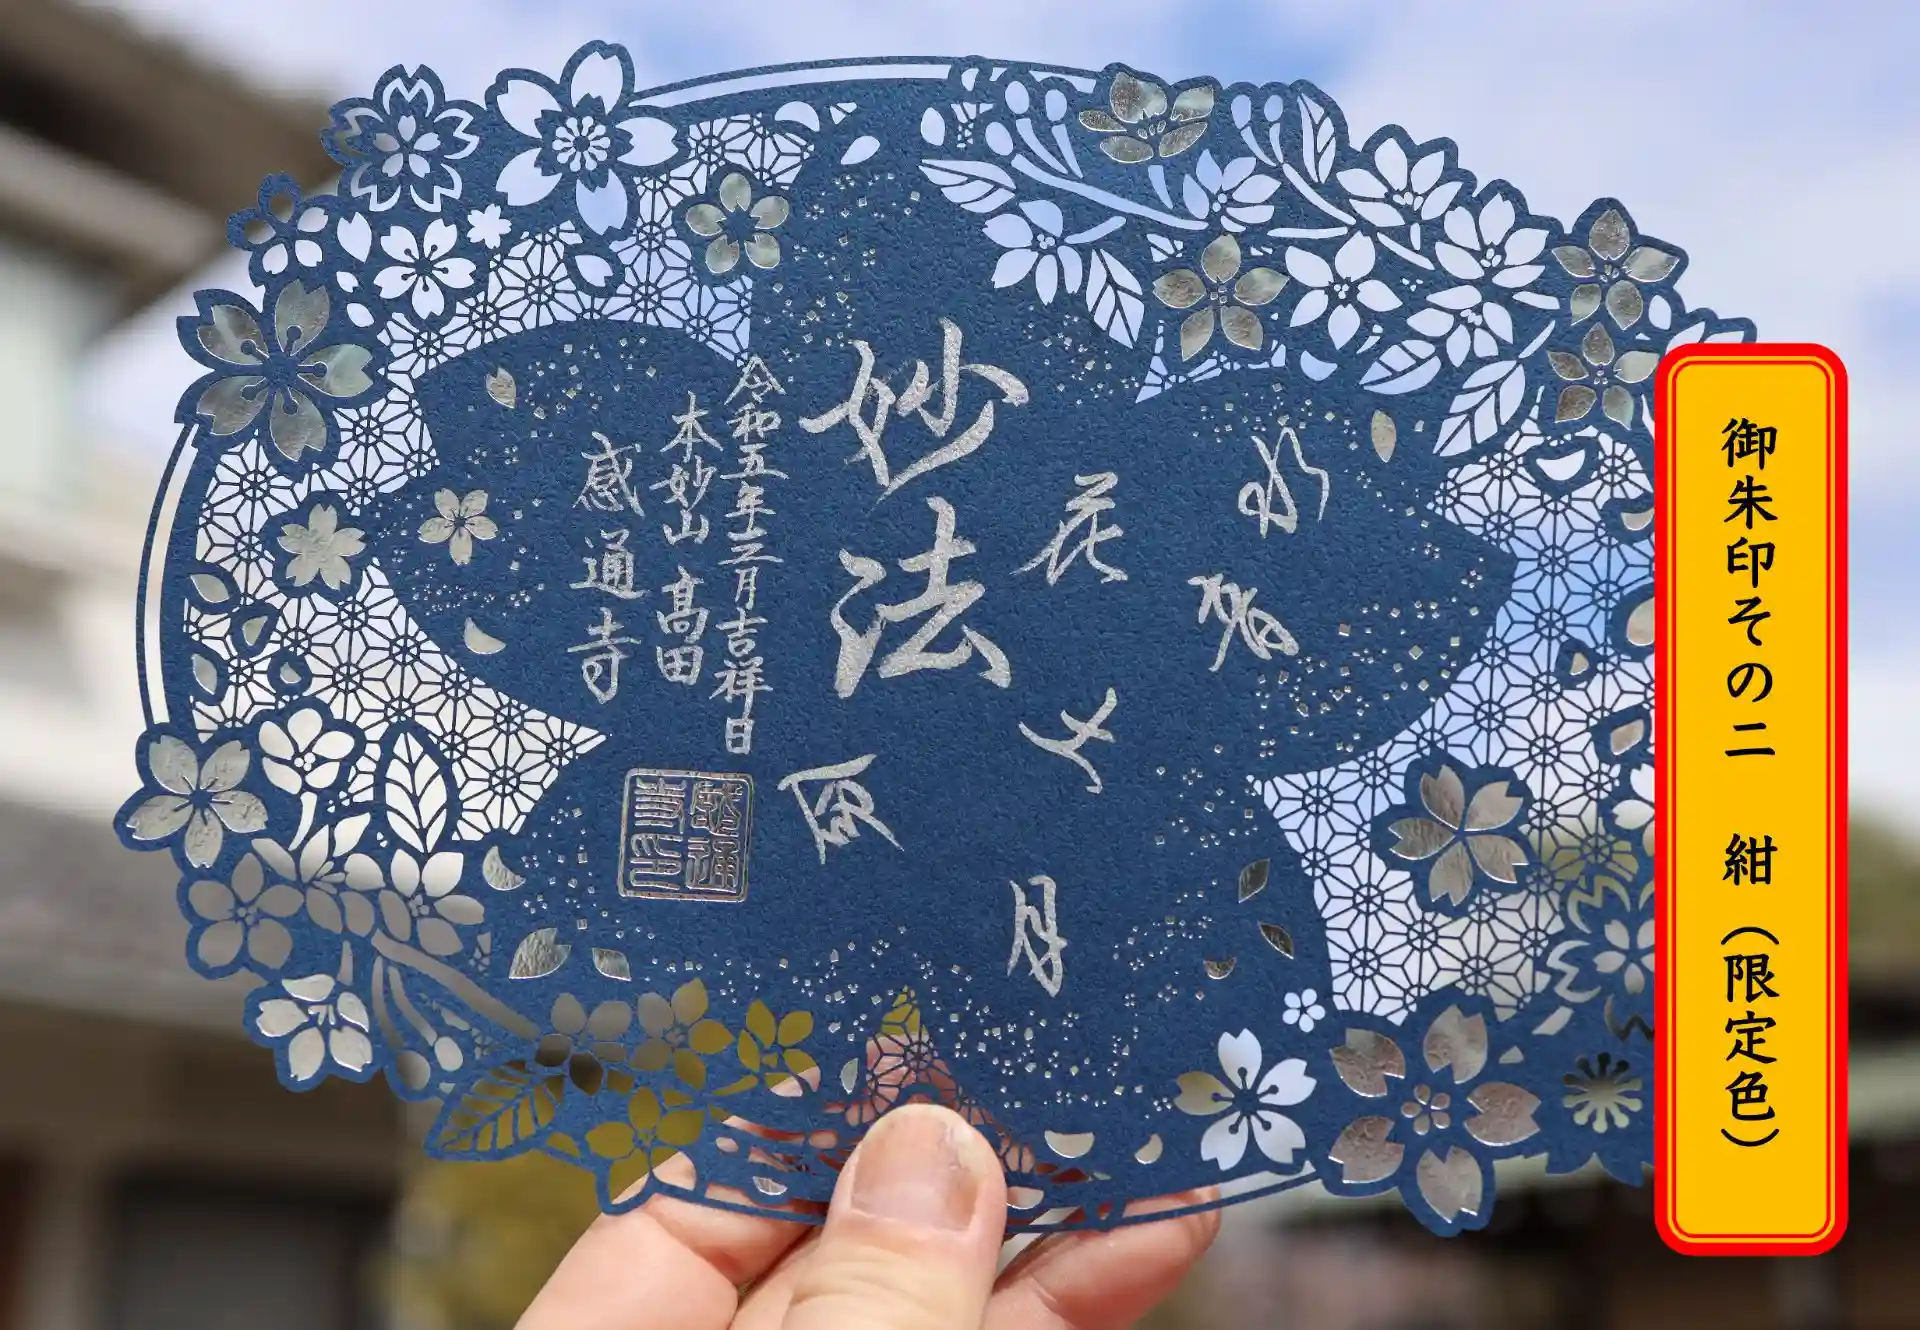 御朱印その二　紺（限定色）
水
花
月
妙法
令和五年三月吉祥日
本妙山 髙田
感通寺
感通
寺印